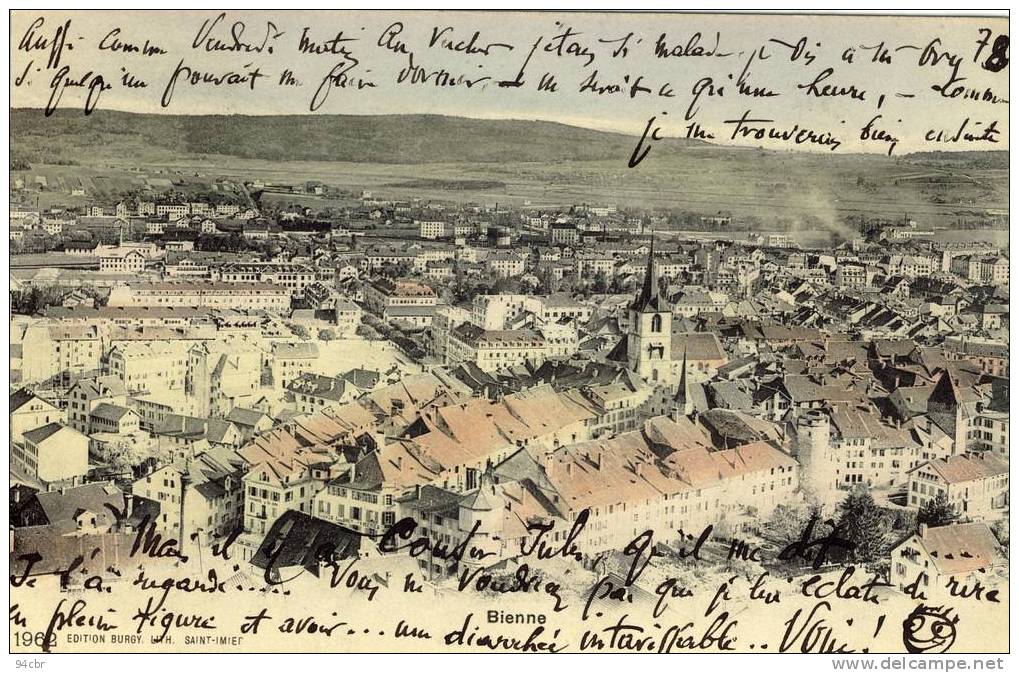 Aussi comme Vendredi matin An Vacher j'étais si malade je dis à m
si quelqu'un pouvait me faire dormir, – ne serait-ce qu'une heure, – comme
je me trouverais bien ensuite
Mais il y a Cousin Jules, qui me dit
Je l'ai regardé..... Vous ne voudriez pas que je lui éclate de rire
en pleine figure et avoir... une diarrhée intarissable.. Voui!
Bienne
1962 EDITION BURGY. LITH. SAINT-IMIER
94cbr
delcampe.net